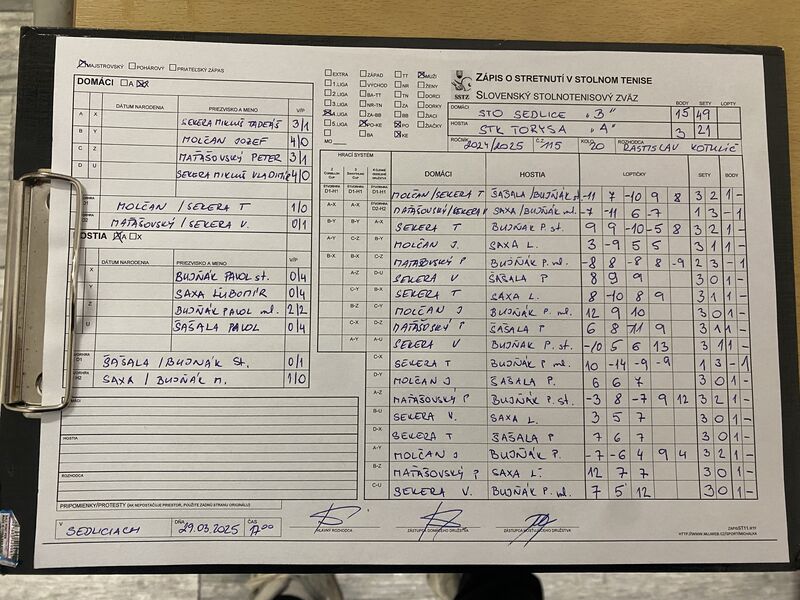 MAJSTROVSKÝ POHÁROVÝ PRIATEĽSKÝ ZÁPAS
DOMÁCI A
DÁTUM NARODENIA PRIEZVISKO A MENO V/P
A X SEKERA MIKULIŠ TADEÁŠ 3/1
B Y MOLČAN JOZEF 4/0
C Z MAŤAŠOVSKÝ PETER 3/1
D U SEKERA MIKULIŠ VLADIMÍR 4/0
D1 MOLČAN / SEKERA T 1/0
MAŤAŠOVSKÝ / SEKERA V. 0/1
OSTIA A X
DÁTUM NARODENIA PRIEZVISKO A MENO V/P
X BUJŇÁK PAVOL st. 0/4
Y SAXA ĽUBOMÍR 0/4
Z BUJŇÁK PAVOL ml. 2/2
U ŠAŠALA PAVOL 0/4
D1 ŠAŠALA / BUJŇÁK St. 0/1
H2 SAXA / BUJŇÁK M. 1/0
HOSTIA
ROZHODCA
PRIPOMIENKY/PROTESTY (AK NEPOSTAČUJE PRIESTOR, POUŽITE ZADNÚ STRANU ORIGINÁLU)
V SEDLICIACH DŇA 29.03.2025 ČAS 17:00
HLAVNÝ ROZHODCA ZÁSTUPCA DOMÁCEHO DRUŽSTVA ZÁSTUPCA HOSŤUJÚCEHO DRUŽSTVA
EXTRA ZÁPAD TT MUŽI
1.LIGA VÝCHOD NR ŽENY
2.LIGA BA-TT TN DORCI
3.LIGA NR-TN ZA DORKY
4.LIGA ZA-BB BB ŽIACI
5.LIGA PO-KE PO ŽIAČKY
BA KE
MO
SSTZ
ZÁPIS O STRETNUTÍ V STOLNOM TENISE
SLOVENSKÝ STOLNOTENISOVÝ ZVÄZ
BODY SETY LOPTY
DOMÁCI STO SEDLICE "B" 15 49
HOSTIA STK TORYSA "A" 3 21
ROČNÍK 2024/2025 Č.Z 115 KOLO 20 ROZHODCA RASTISLAV KOTULIČ
HRACÍ SYSTÉM DOMÁCI HOSTIA LOPTIČKY SETY BODY
D1-H1 D1-H1 D1-H1 MOLČAN / SEKERA T ŠAŠALA/BUJŇÁK -11 7 -10 9 8 3 2 1 -
A-X A-X D2-H2 MAŤAŠOVSKÝ/SEKERA V SAXA/BUJŇÁK ml. -7 -11 6 -7 1 3 - 1
B-Y B-Y SEKERA T BUJŇÁK P. st. 9 9 -10 -5 8 3 2 1 -
A-Y C-Z B-Y MOLČAN J. SAXA L. 3 -9 5 5 3 1 1 -
B-X B-X C-Z MAŤAŠOVSKÝ P BUJŇÁK P. ml. -8 8 -8 8 -9 2 3 - 1
A-Z D-U SEKERA V ŠAŠALA P 8 9 9 3 0 1 -
C-Y B-X SEKERA T SAXA L. 8 -10 8 9 3 1 1 -
B-Z C-Y MOLČAN J BUJŇÁK P. ml. 12 9 10 3 0 1 -
C-X D-Z MAŤAŠOVSKÝ P ŠAŠALA P 6 8 11 9 3 1 1 -
A-Y A-U SEKERA V BUJŇÁK P. st. -10 5 6 13 3 1 1 -
C-X SEKERA T BUJŇÁK P ml. 10 -14 -9 -9 1 3 - 1
D-Y MOLČAN J ŠAŠALA P. 6 6 7 3 0 1 -
A-Z MAŤAŠOVSKÝ P BUJŇÁK P. st. -3 8 -7 9 12 3 2 1 -
B-U SEKERA V. SAXA L. 3 5 7 3 0 1 -
D-X SEKERA T ŠAŠALA P 7 6 7 3 0 1 -
A-Y MOLČAN J BUJŇÁK P. -7 -6 4 9 4 3 2 1 -
B-Z MAŤAŠOVSKÝ P SAXA L. 12 7 7 3 0 1 -
C-U SEKERA V. BUJŇÁK P. ml. 7 5 12 3 0 1 -
HTTP://WWW.MUJWEB.CZ/SPORT/MICHALKA